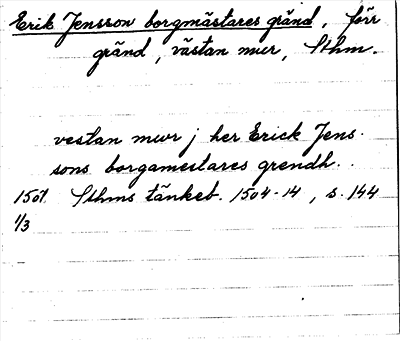 Erik Jensson borgmästares gränd, förr
gränd, västan mur, Sthm.
vestan mwr j her Erick Jens-
sons borgamestares grendh..
1507 Sthms tänkeb. 1504-14, s. 144
1/3